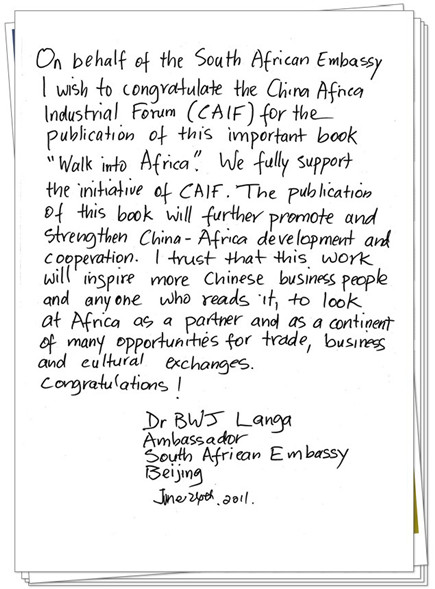 On behalf of the South African Embassy
I wish to congratulate the China Africa
Industrial Forum (CAIF) for the
publication of this important book
"Walk into Africa". We fully support
the initiative of CAIF. The publication
of this book will further promote and
strengthen China-Africa development and
cooperation. I trust that this work
will inspire more Chinese business people
and anyone who reads it, to look
at Africa as a partner and as a continent
of many opportunities for trade, business
and cultural exchanges.
Congratulations!
Dr BWJ Langa
Ambassador
South African Embassy
Beijing
June 24th. 2011.